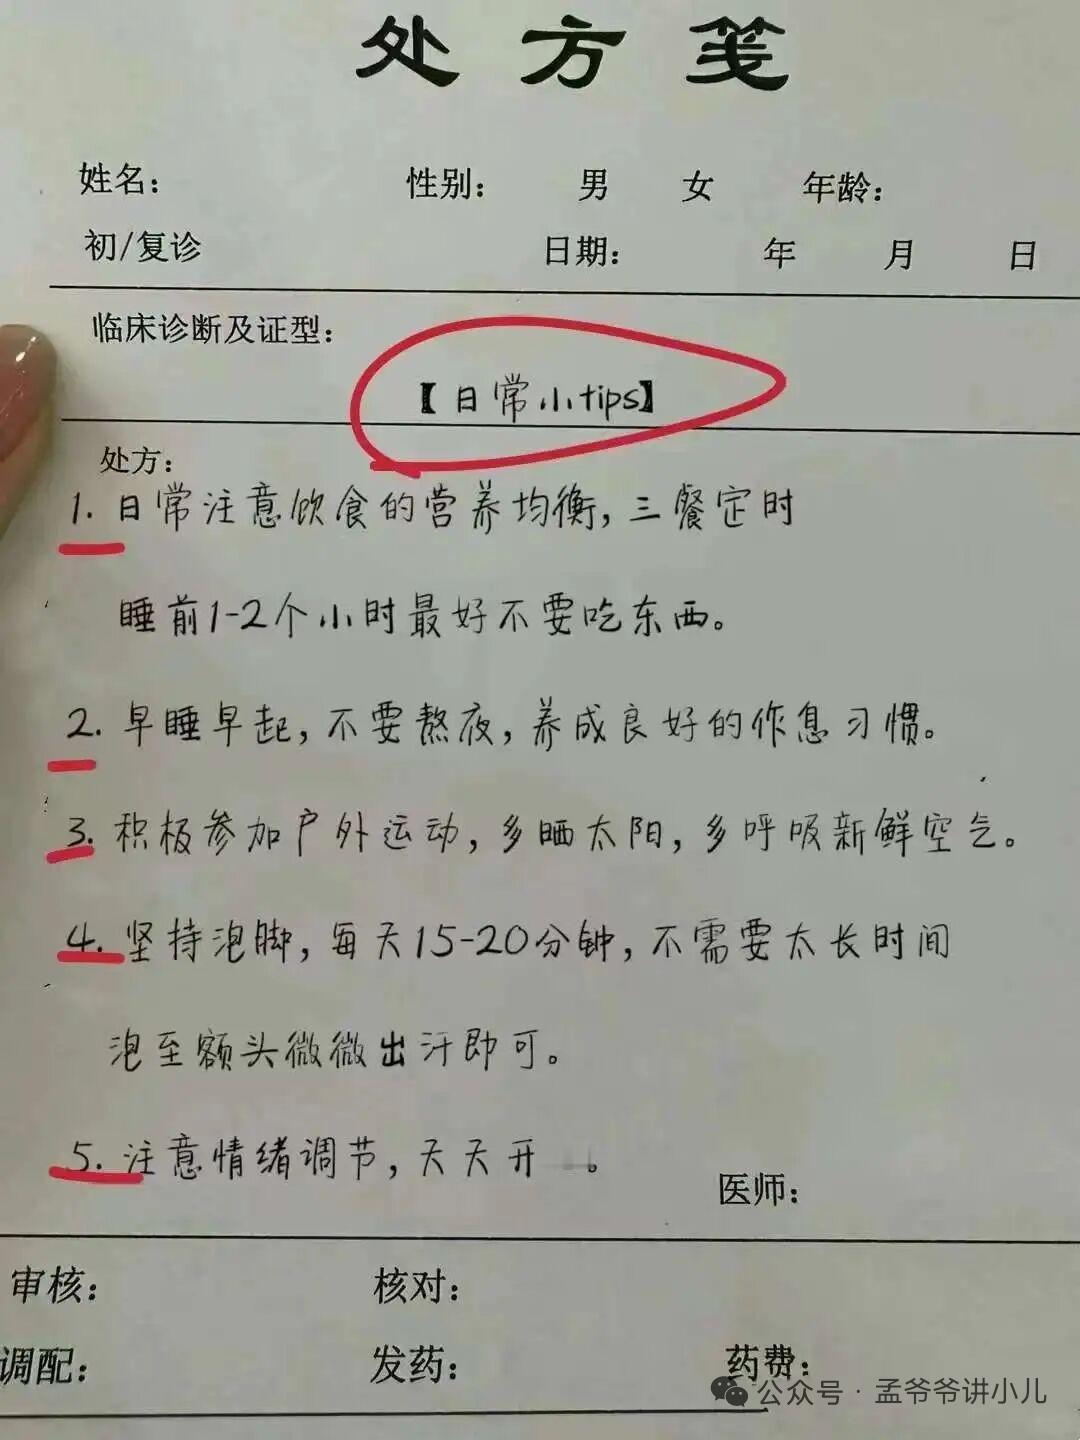 处方笺
姓名： 性别： 男 女 年龄：
初/复诊 日期： 年 月 日
临床诊断及证型：
【日常小tips】
处方：
1. 日常注意饮食的营养均衡，三餐定时
睡前1-2个小时最好不要吃东西。
2. 早睡早起，不要熬夜，养成良好的作息习惯。
3. 积极参加户外运动，多晒太阳，多呼吸新鲜空气。
4. 坚持泡脚，每天15-20分钟，不需要太长时间
泡至额头微微出汗即可。
5. 注意情绪调节，天天开 。
医师：
审核： 核对：
调配： 发药： 药费：
公众号·孟爷爷讲小儿